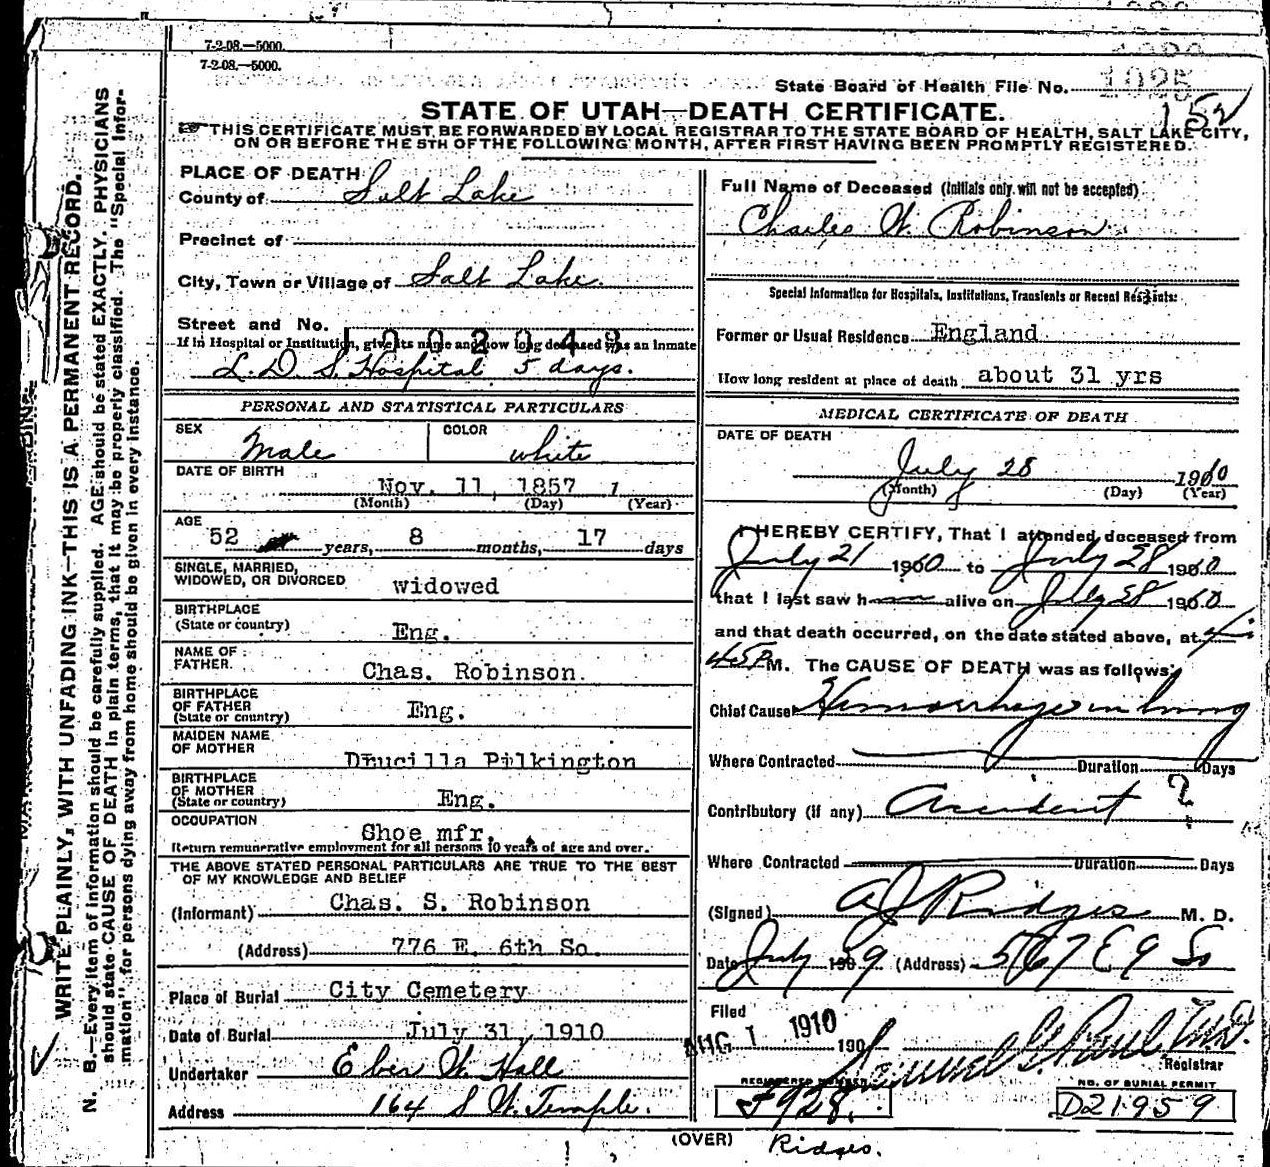 7-2-08.—5000.
7-2-08.—5000.
State Board of Health File No. 1025
152
STATE OF UTAH—DEATH CERTIFICATE.
THIS CERTIFICATE MUST BE FORWARDED BY LOCAL REGISTRAR TO THE STATE BOARD OF HEALTH, SALT LAKE CITY,
ON OR BEFORE THE 5TH OF THE FOLLOWING MONTH, AFTER FIRST HAVING BEEN PROMPTLY REGISTERED.
WRITE PLAINLY, WITH UNFADING INK—THIS IS A PERMANENT RECORD.
N. B.—Every item of information should be carefully supplied. AGE should be stated EXACTLY. PHYSICIANS
should state CAUSE OF DEATH in plain terms, that it may be properly classified. The "Special Infor-
mation" for persons dying away from home should be given in every instance.
PLACE OF DEATH
County of Salt Lake
Precinct of
City, Town or Village of Salt Lake.
Street and No.
If in Hospital or Institution, give its name and how long deceased was an Inmate
L. D. S. Hospital 5 days.
PERSONAL AND STATISTICAL PARTICULARS
SEX Male COLOR white
DATE OF BIRTH
Nov. 11, 1857
(Month) (Day) (Year)
AGE
52 years, 8 months, 17 days
SINGLE, MARRIED,
WIDOWED, OR DIVORCED widowed
BIRTHPLACE
(State or country) Eng.
NAME OF
FATHER. Chas. Robinson.
BIRTHPLACE
OF FATHER
(State or country) Eng.
MAIDEN NAME
OF MOTHER Drucilla Pilkington
BIRTHPLACE
OF MOTHER
(State or country) Eng.
OCCUPATION
Shoe mfr.
Return remunerative employment for all persons 10 years of age and over.
THE ABOVE STATED PERSONAL PARTICULARS ARE TRUE TO THE BEST
OF MY KNOWLEDGE AND BELIEF
(Informant) Chas. S. Robinson
(Address) 776 E. 6th So.
Place of Burial City Cemetery
Date of Burial July 31, 1910
Undertaker Eber W. Hall
Address 164 S W. Temple.
Full Name of Deceased (Initials only will not be accepted)
Charles W. Robinson
Special Information for Hospitals, Institutions, Transients or Recent Residents:
Former or Usual Residence England
How long resident at place of death about 31 yrs
MEDICAL CERTIFICATE OF DEATH
DATE OF DEATH
July 28 1910
(Month) (Day) (Year)
I HEREBY CERTIFY, That I attended deceased from
July 21 1910 to July 28 1910
that I last saw h alive on July 28 1910
and that death occurred, on the date stated above, at 4:
45 P M. The CAUSE OF DEATH was as follows:
Chief Cause Hemorrhage in lung
Where Contracted Duration Days
Contributory (if any) Accident ?
Where Contracted Duration Days
(Signed) A J Ridges M. D.
Date July 1909 (Address) 567 E 9 So
Filed
AUG 1 1910 190
Samuel G. Paul M.D.
Registrar
REGISTERED NUMBER
F928.
NO. OF BURIAL PERMIT
D21959
(OVER) Ridges.